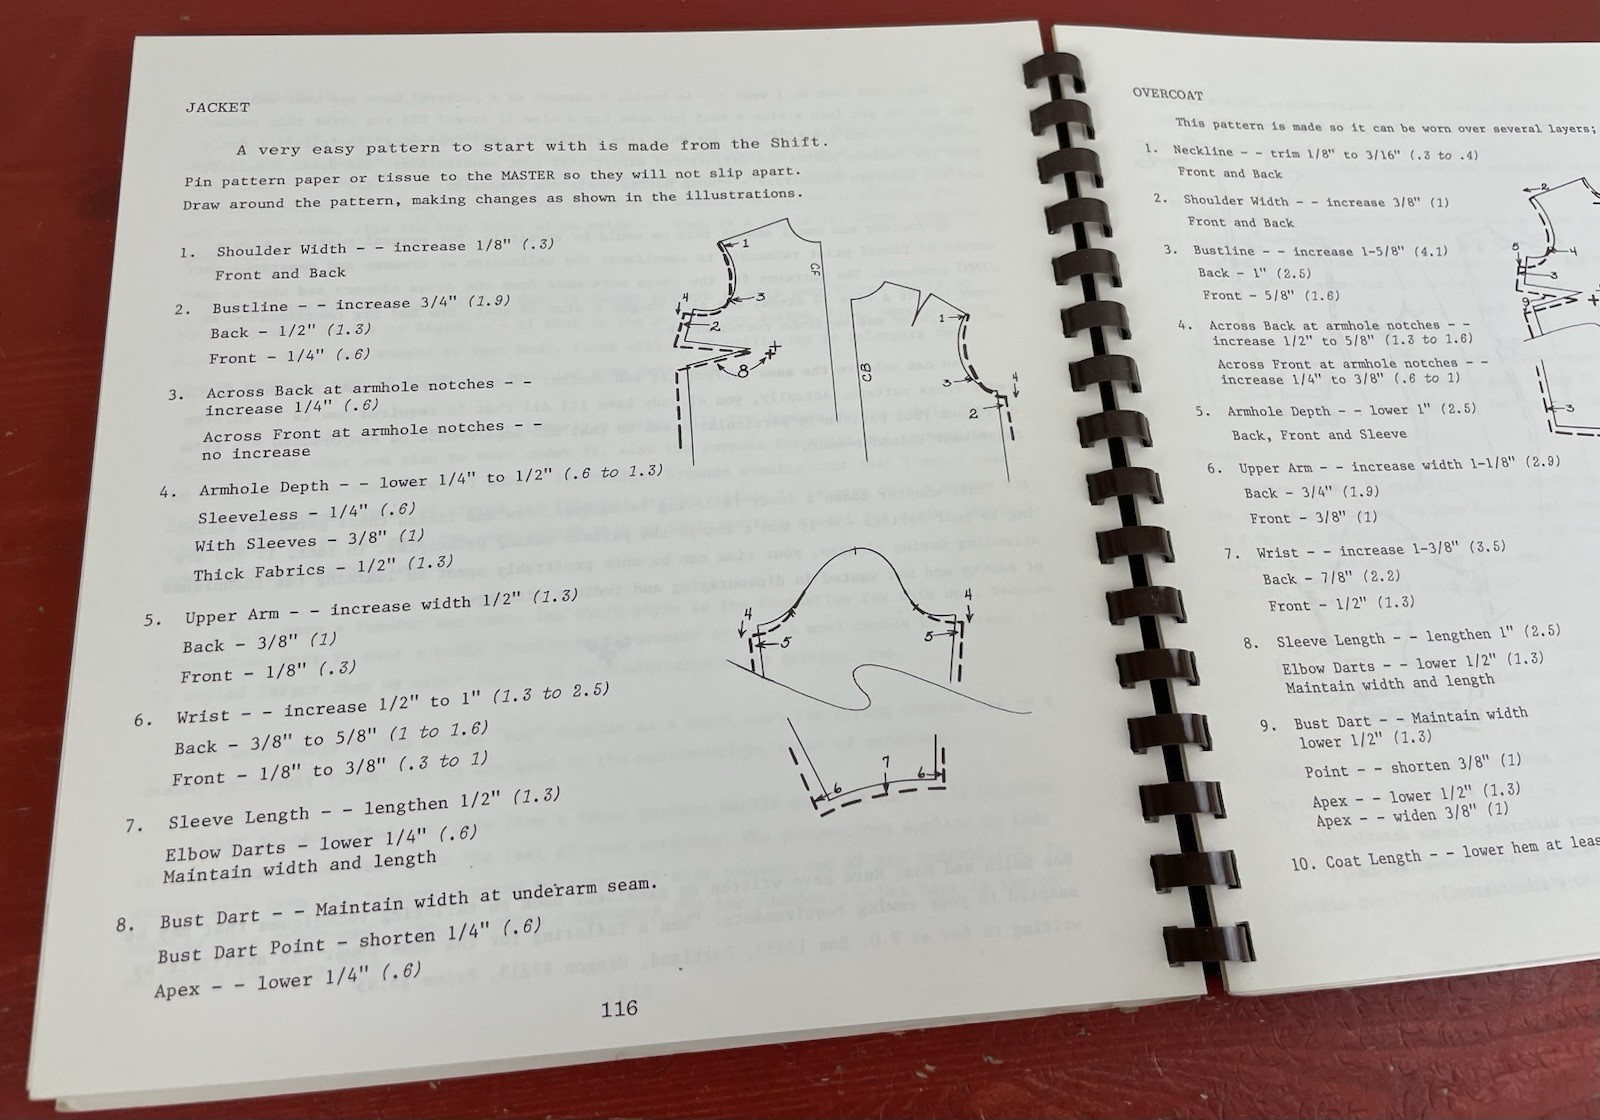 JACKET
A very easy pattern to start with is made from the Shift.
Pin pattern paper or tissue to the MASTER so they will not slip apart.
Draw around the pattern, making changes as shown in the illustrations.
1. Shoulder Width - - increase 1/8" (.3)
Front and Back
2. Bustline - - increase 3/4" (1.9)
Back - 1/2" (1.3)
Front - 1/4" (.6)
3. Across Back at armhole notches - -
increase 1/4" (.6)
Across Front at armhole notches - -
no increase
4. Armhole Depth - - lower 1/4" to 1/2" (.6 to 1.3)
Sleeveless - 1/4" (.6)
With Sleeves - 3/8" (1)
Thick Fabrics - 1/2" (1.3)
5. Upper Arm - - increase width 1/2" (1.3)
Back - 3/8" (1)
Front - 1/8" (.3)
6. Wrist - - increase 1/2" to 1" (1.3 to 2.5)
Back - 3/8" to 5/8" (1 to 1.6)
Front - 1/8" to 3/8" (.3 to 1)
7. Sleeve Length - - lengthen 1/2" (1.3)
Elbow Darts - lower 1/4" (.6)
Maintain width and length
8. Bust Dart - - Maintain width at underarm seam.
Bust Dart Point - shorten 1/4" (.6)
Apex - - lower 1/4" (.6)
1
CF
4
3
2
8
CB
1
3
4
2
4
5
4
5
6
7
6
116
OVERCOAT
This pattern is made so it can be worn over several layers;
1. Neckline - - trim 1/8" to 3/16" (.3 to .4)
Front and Back
2. Shoulder Width - - increase 3/8" (1)
Front and Back
3. Bustline - - increase 1-5/8" (4.1)
Back - 1" (2.5)
Front - 5/8" (1.6)
4. Across Back at armhole notches - -
increase 1/2" to 5/8" (1.3 to 1.6)
Across Front at armhole notches - -
increase 1/4" to 3/8" (.6 to 1)
5. Armhole Depth - - lower 1" (2.5)
Back, Front and Sleeve
6. Upper Arm - - increase width 1-1/8" (2.9)
Back - 3/4" (1.9)
Front - 3/8" (1)
7. Wrist - - increase 1-3/8" (3.5)
Back - 7/8" (2.2)
Front - 1/2" (1.3)
8. Sleeve Length - - lengthen 1" (2.5)
Elbow Darts - - lower 1/2" (1.3)
Maintain width and length
9. Bust Dart - - Maintain width
lower 1/2" (1.3)
Point - - shorten 3/8" (1)
Apex - - lower 1/2" (1.3)
Apex - - widen 3/8" (1)
10. Coat Length - - lower hem at
2
5
4
3
9
3